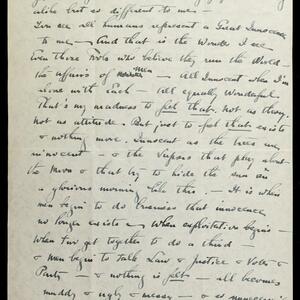 alike but so different to me —
You see all humans represent a Great Innocence
to me — And that is the Wonder I see
Even those Fools who believe they run the World —
the affairs of men — All Innocent when I'm
alone with Each — All equally Wonderful
That's my madness to feel that. Not as theory
not as attitude. But just to feel that exists
& nothing more. Innocent as the trees are
innocent — & the Vapors that play about
the Moon & that try to hide the sun on
a glorious morning like this. — It is when
men begin to do business that innocence
no longer exists — When exploitation begins —
When two get together to do a third
& Men begin to talk Law & Justice & Vote &
Party — & nothing is felt — all becomes
muddy & ugly & messy — & so unnecessary